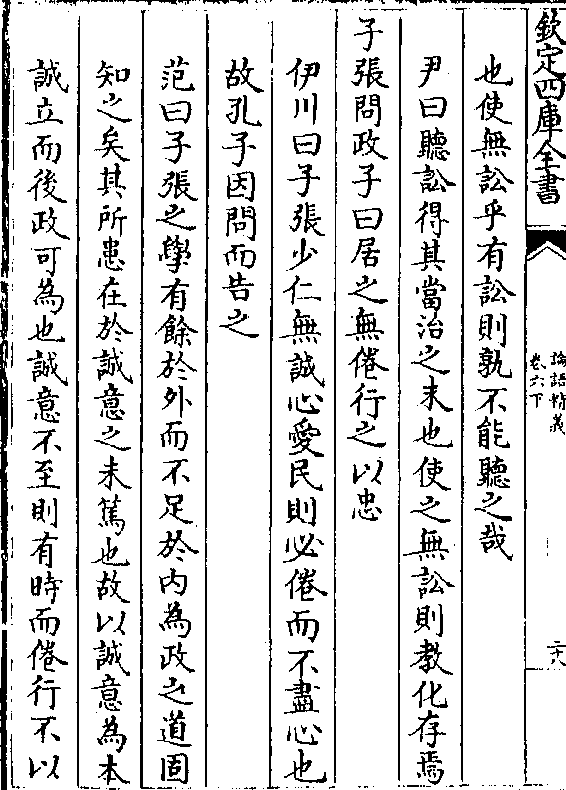 欽定四庫全書
論語精義
卷六下
二八
也使無訟乎有訟則孰不能聽之哉
尹曰聽訟得其當治之末也使之無訟則教化存焉
子張問政子曰居之無倦行之以忠
伊川曰子張少仁無誠心愛民則必倦而不盡心也
故孔子因問而告之
范曰子張之學有餘於外而不足於内為政之道固
知之矣其所患在於誠意之未篤也故以誠意為本
誠立而後政可為也誠意不至則有時而倦行不以